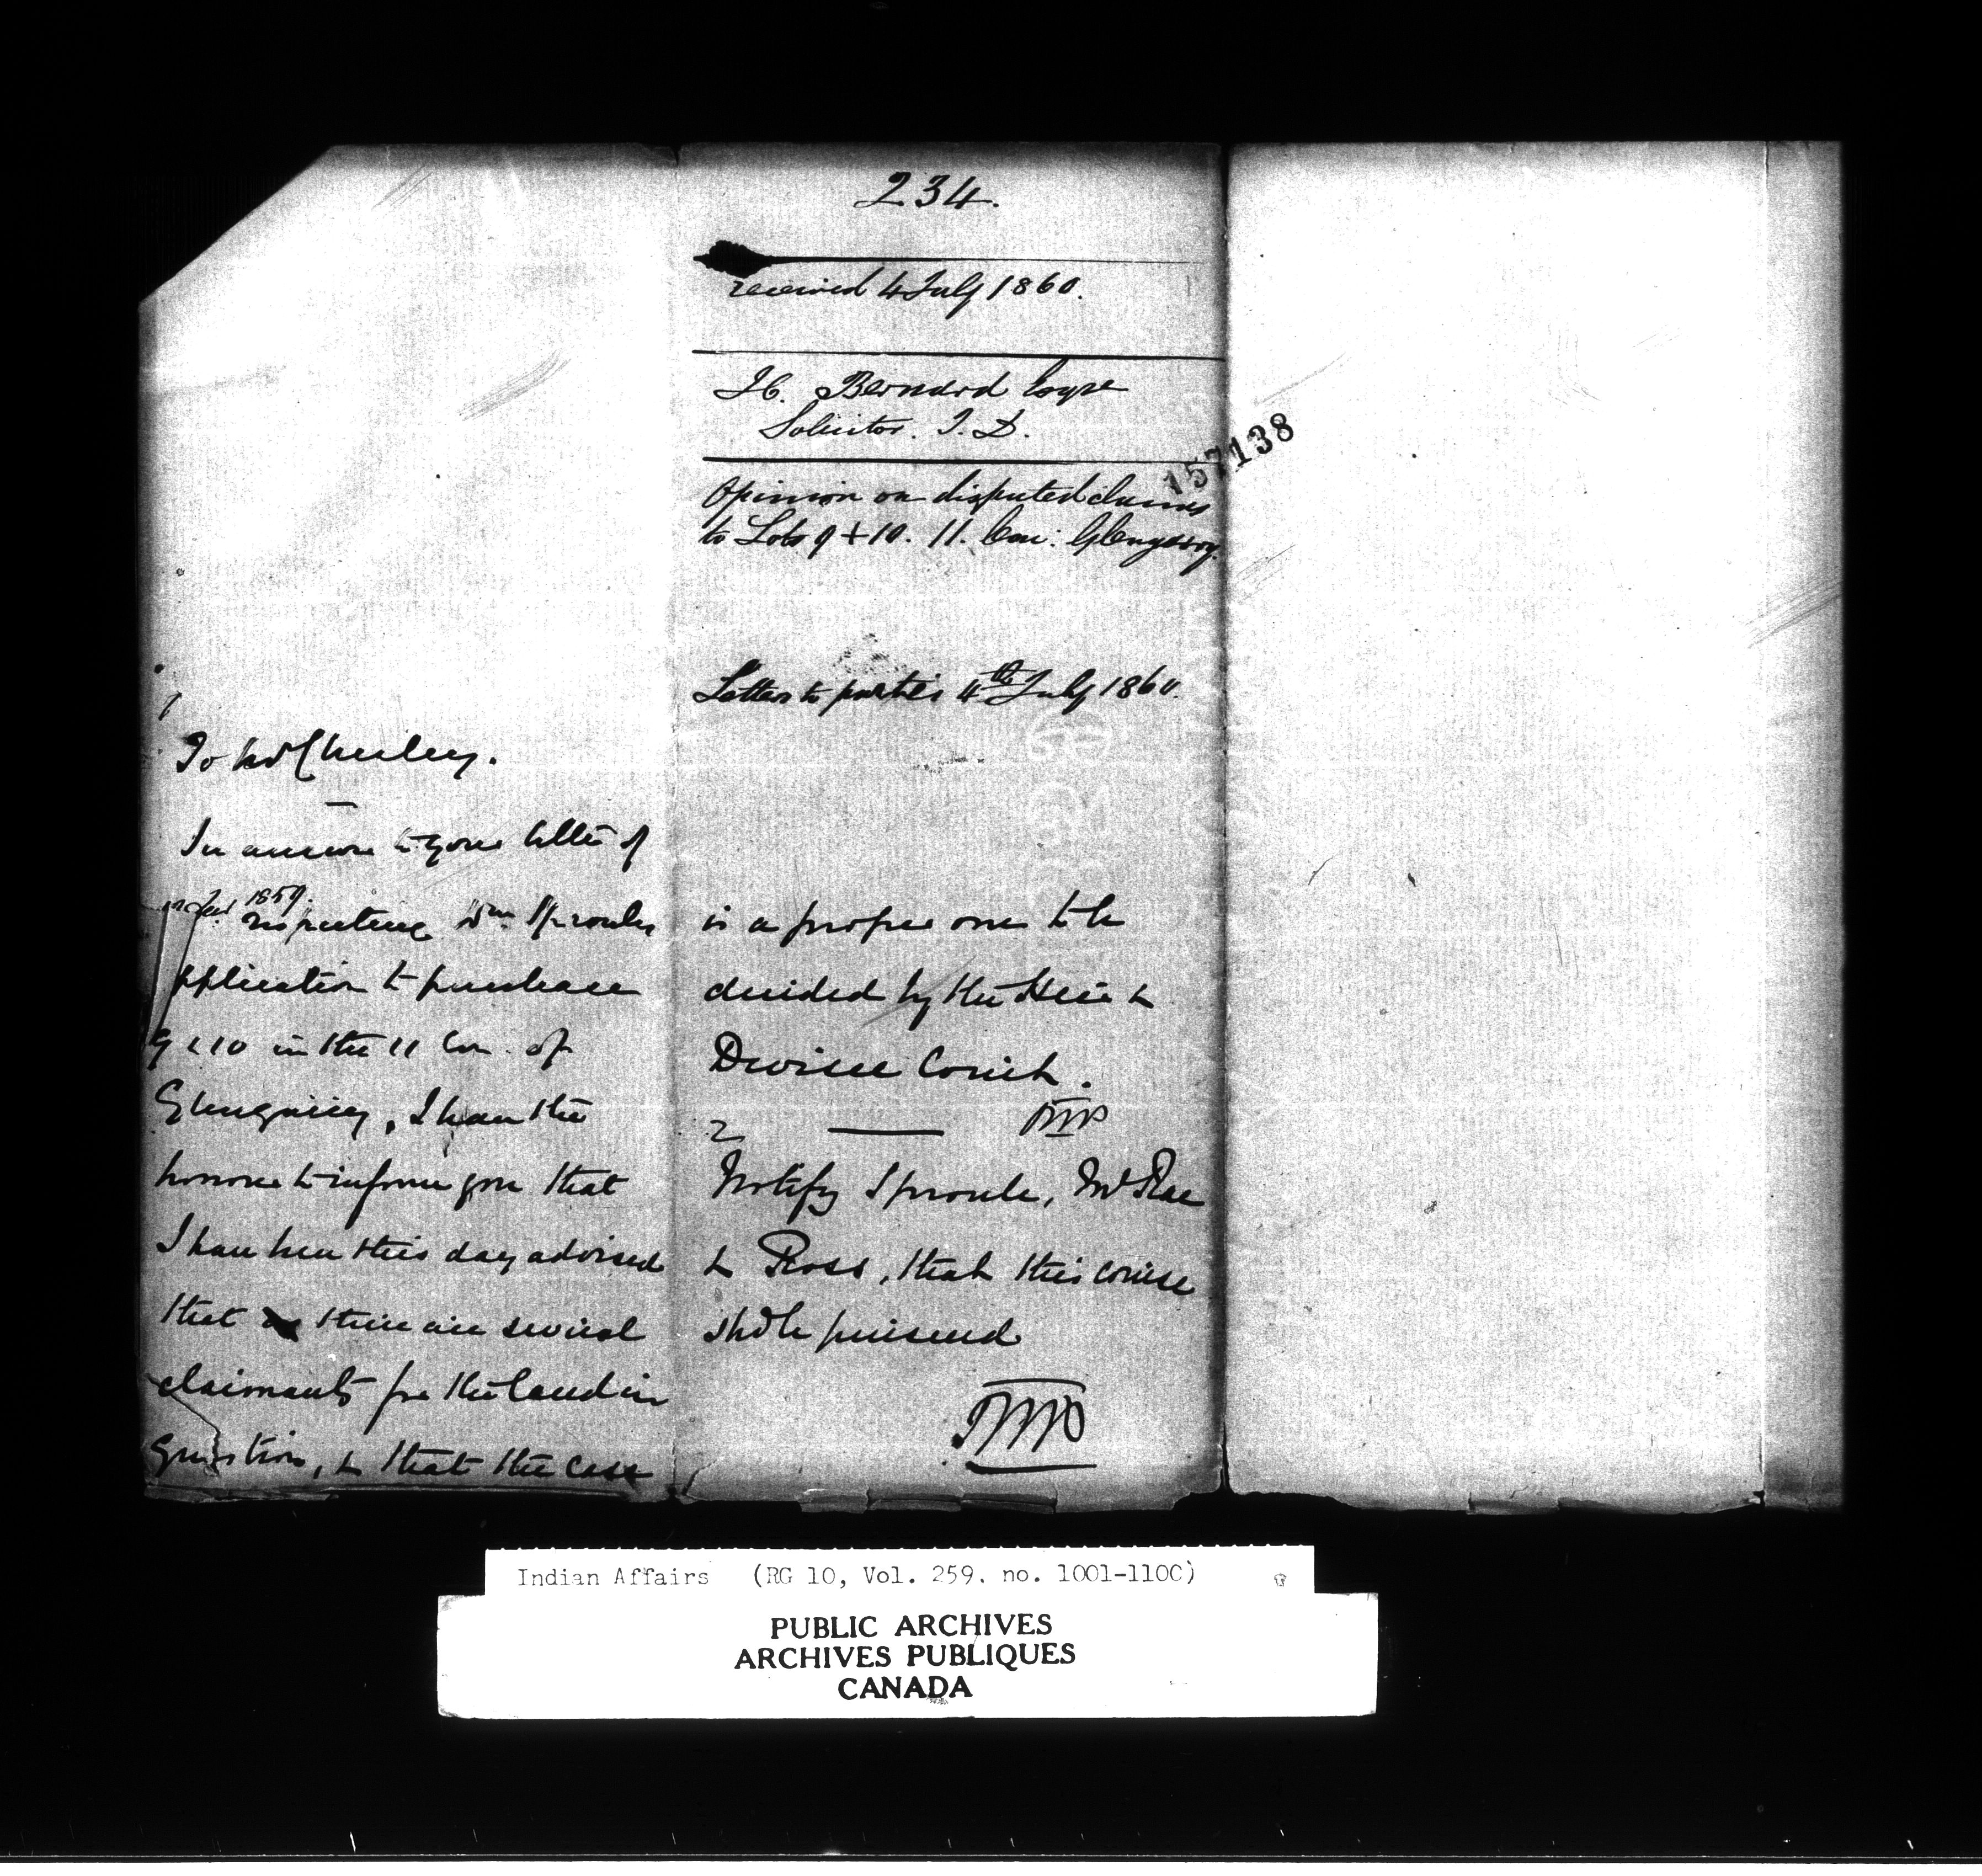 234.
received 4 July 1860.
H. Bernard Esqre
Solicitor. I. D.
157138
Opinion on disputed claims
to Lots 9 + 10. 11. Con: Glengarry.
Letter to parties 4th July 1860.
To
In answer to your letter of
1859.
respecting Wm Sproule
application to purchase
9 & 10 in the 11 Con. of
Glengarry, I have the
honor to inform you that
I have been this day advised
that there are several
claimants for the land in
question, & that the case
is a proper one to be
decided by the Heir &
Devisee Court.
2
Notify Sproule, McRae
& Ross, that this course
shd be pursued
Indian Affairs (RG 10, Vol. 259. no. 1001-1100)
PUBLIC ARCHIVES
ARCHIVES PUBLIQUES
CANADA